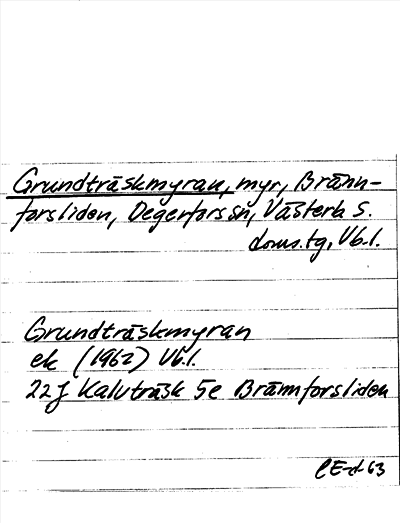 Grundträskmyran, myr, Bränn-
forsliden, Degerfors sn, Västerb s.
doms.tg, Vb.l.
Grundträskmyran
ek (1962) Vb.l.
22J Kalvträsk 5e Brännforsliden
CE-d-63